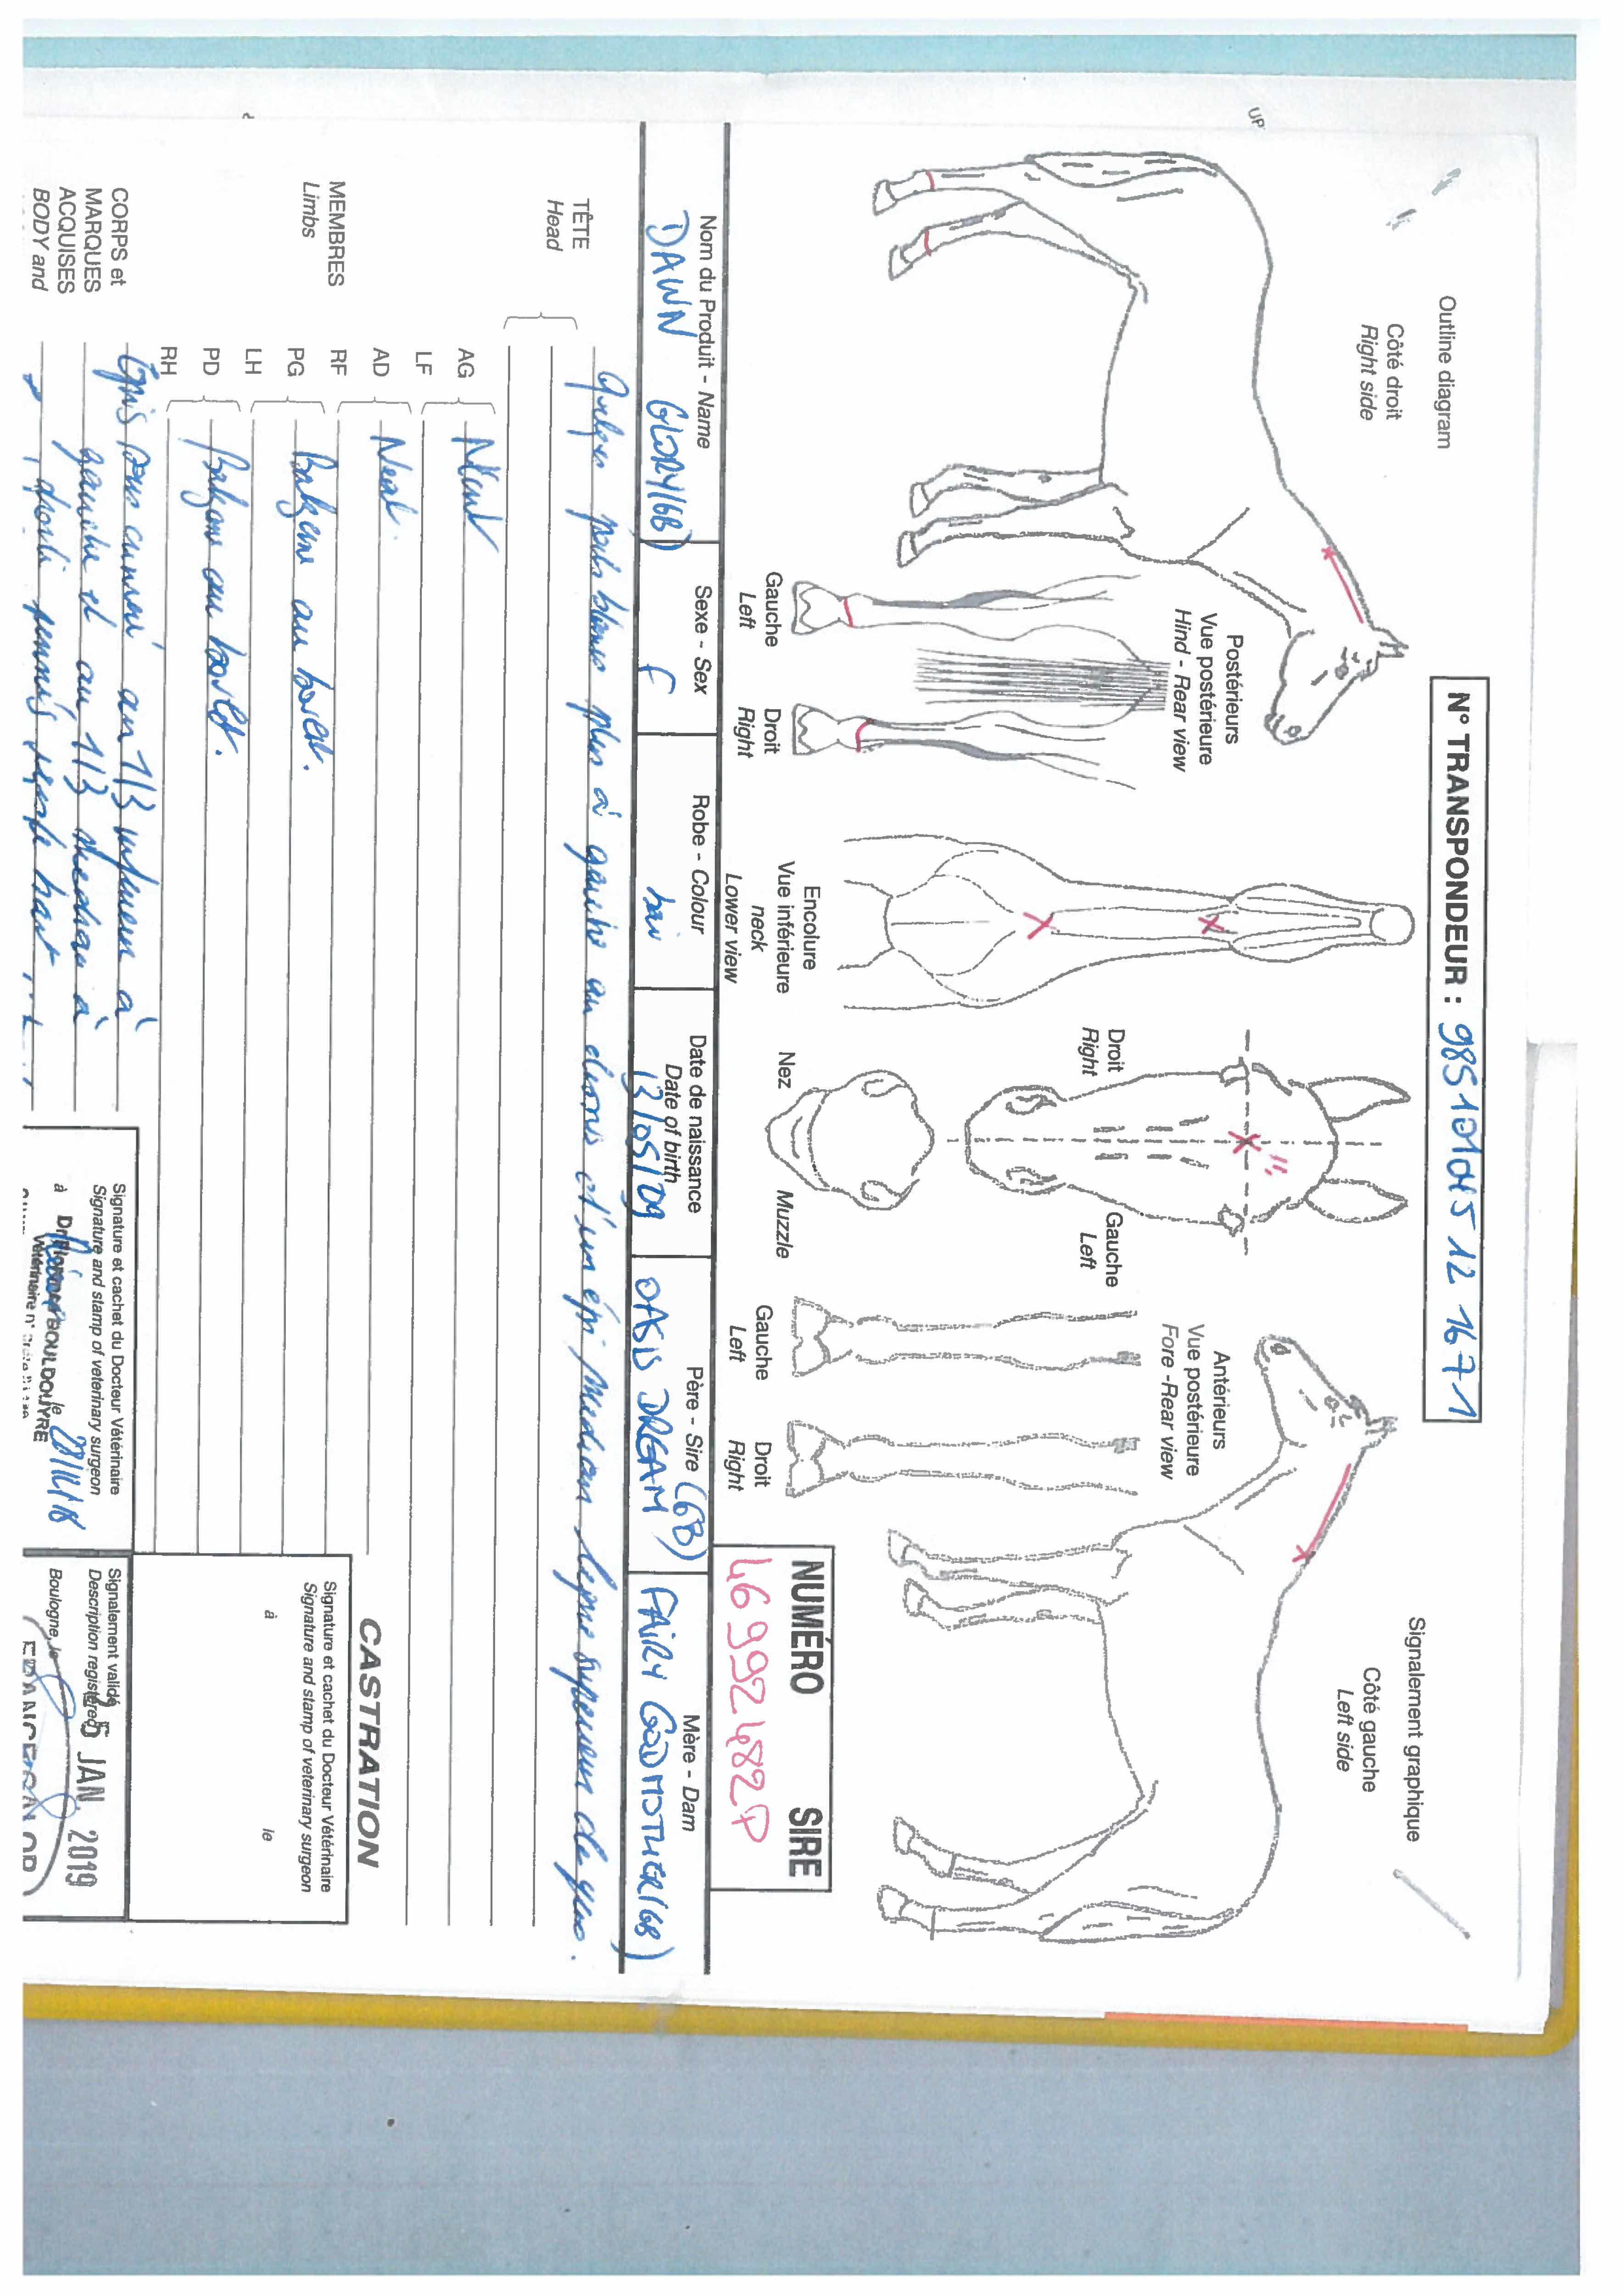 UP
Outline diagram
N° TRANSPONDEUR : 985101045121671
Signalement graphique
Côté droit
Right side
Côté gauche
Left side
Postérieurs
Vue postérieure
Hind - Rear view
Gauche
Left
Droit
Right
Encolure
Vue inférieure
neck
Lower view
Droit
Right
Gauche
Left
Nez
Muzzle
Antérieurs
Vue postérieure
Fore - Rear view
Gauche
Left
Droit
Right
NUMÉRO SIRE
46992482P
Nom du Produit - Name
DAWN GLORY(GB)
Sexe - Sex
F
Robe - Colour
bai
Date de naissance
Date of birth
13/05/09
Père - Sire
OASIS DREAM (GB)
Mère - Dam
FAIRY GODMOTHER(GB)
TÊTE
Head
Quelques poils blancs plus à gauche au dessus d'un épi médian ligne supérieure des yeux.
MEMBRES
Limbs
AG
LF
Néant
AD
RF
Neant
PG
LH
Balzane au boulet.
PD
RH
Balzane au boulet.
CORPS et
MARQUES
ACQUISES
BODY and
Épis sous crinière au 1/3 inférieur à
gauche et au 1/3 médian à
droite
CASTRATION
Signature et cachet du Docteur Vétérinaire
Signature and stamp of veterinary surgeon
à le
Signature et cachet du Docteur Vétérinaire
Signature and stamp of veterinary surgeon
à le
BOULDOUYRE
Signalement validé
Description registered
25 JAN. 2019
Boulogne, le
FRANCE GALOP